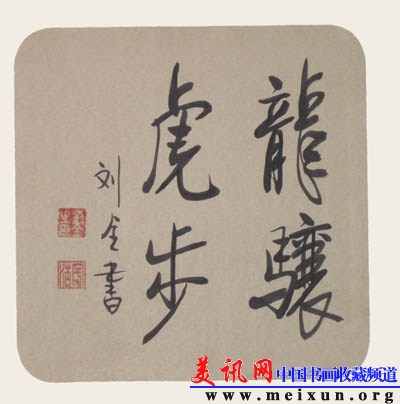 龍驤
虎步
刘仝書
美讯网 中国书画收藏频道
www.meixun.org